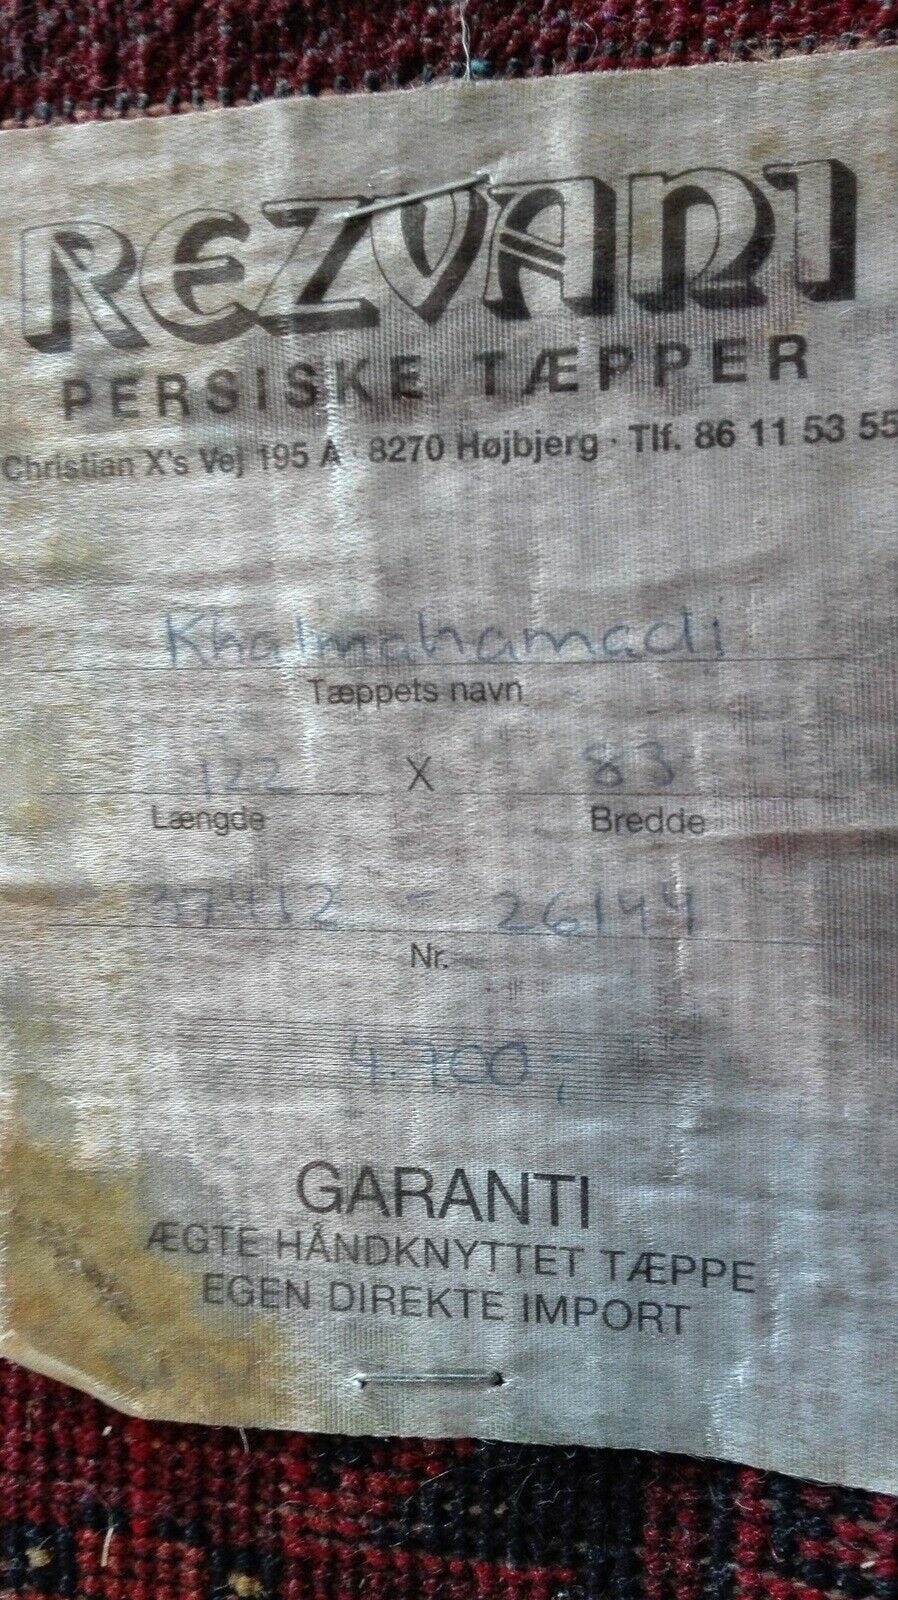 REZVANI
PERSISKE TÆPPER
Christian X's Vej 195 A · 8270 Højbjerg · Tlf. 86 11 53 55
Khalmahamadi
Tæppets navn
122 X 83
Længde Bredde
37412 - 26144
Nr.
4.700,-
GARANTI
ÆGTE HÅNDKNYTTET TÆPPE
EGEN DIREKTE IMPORT